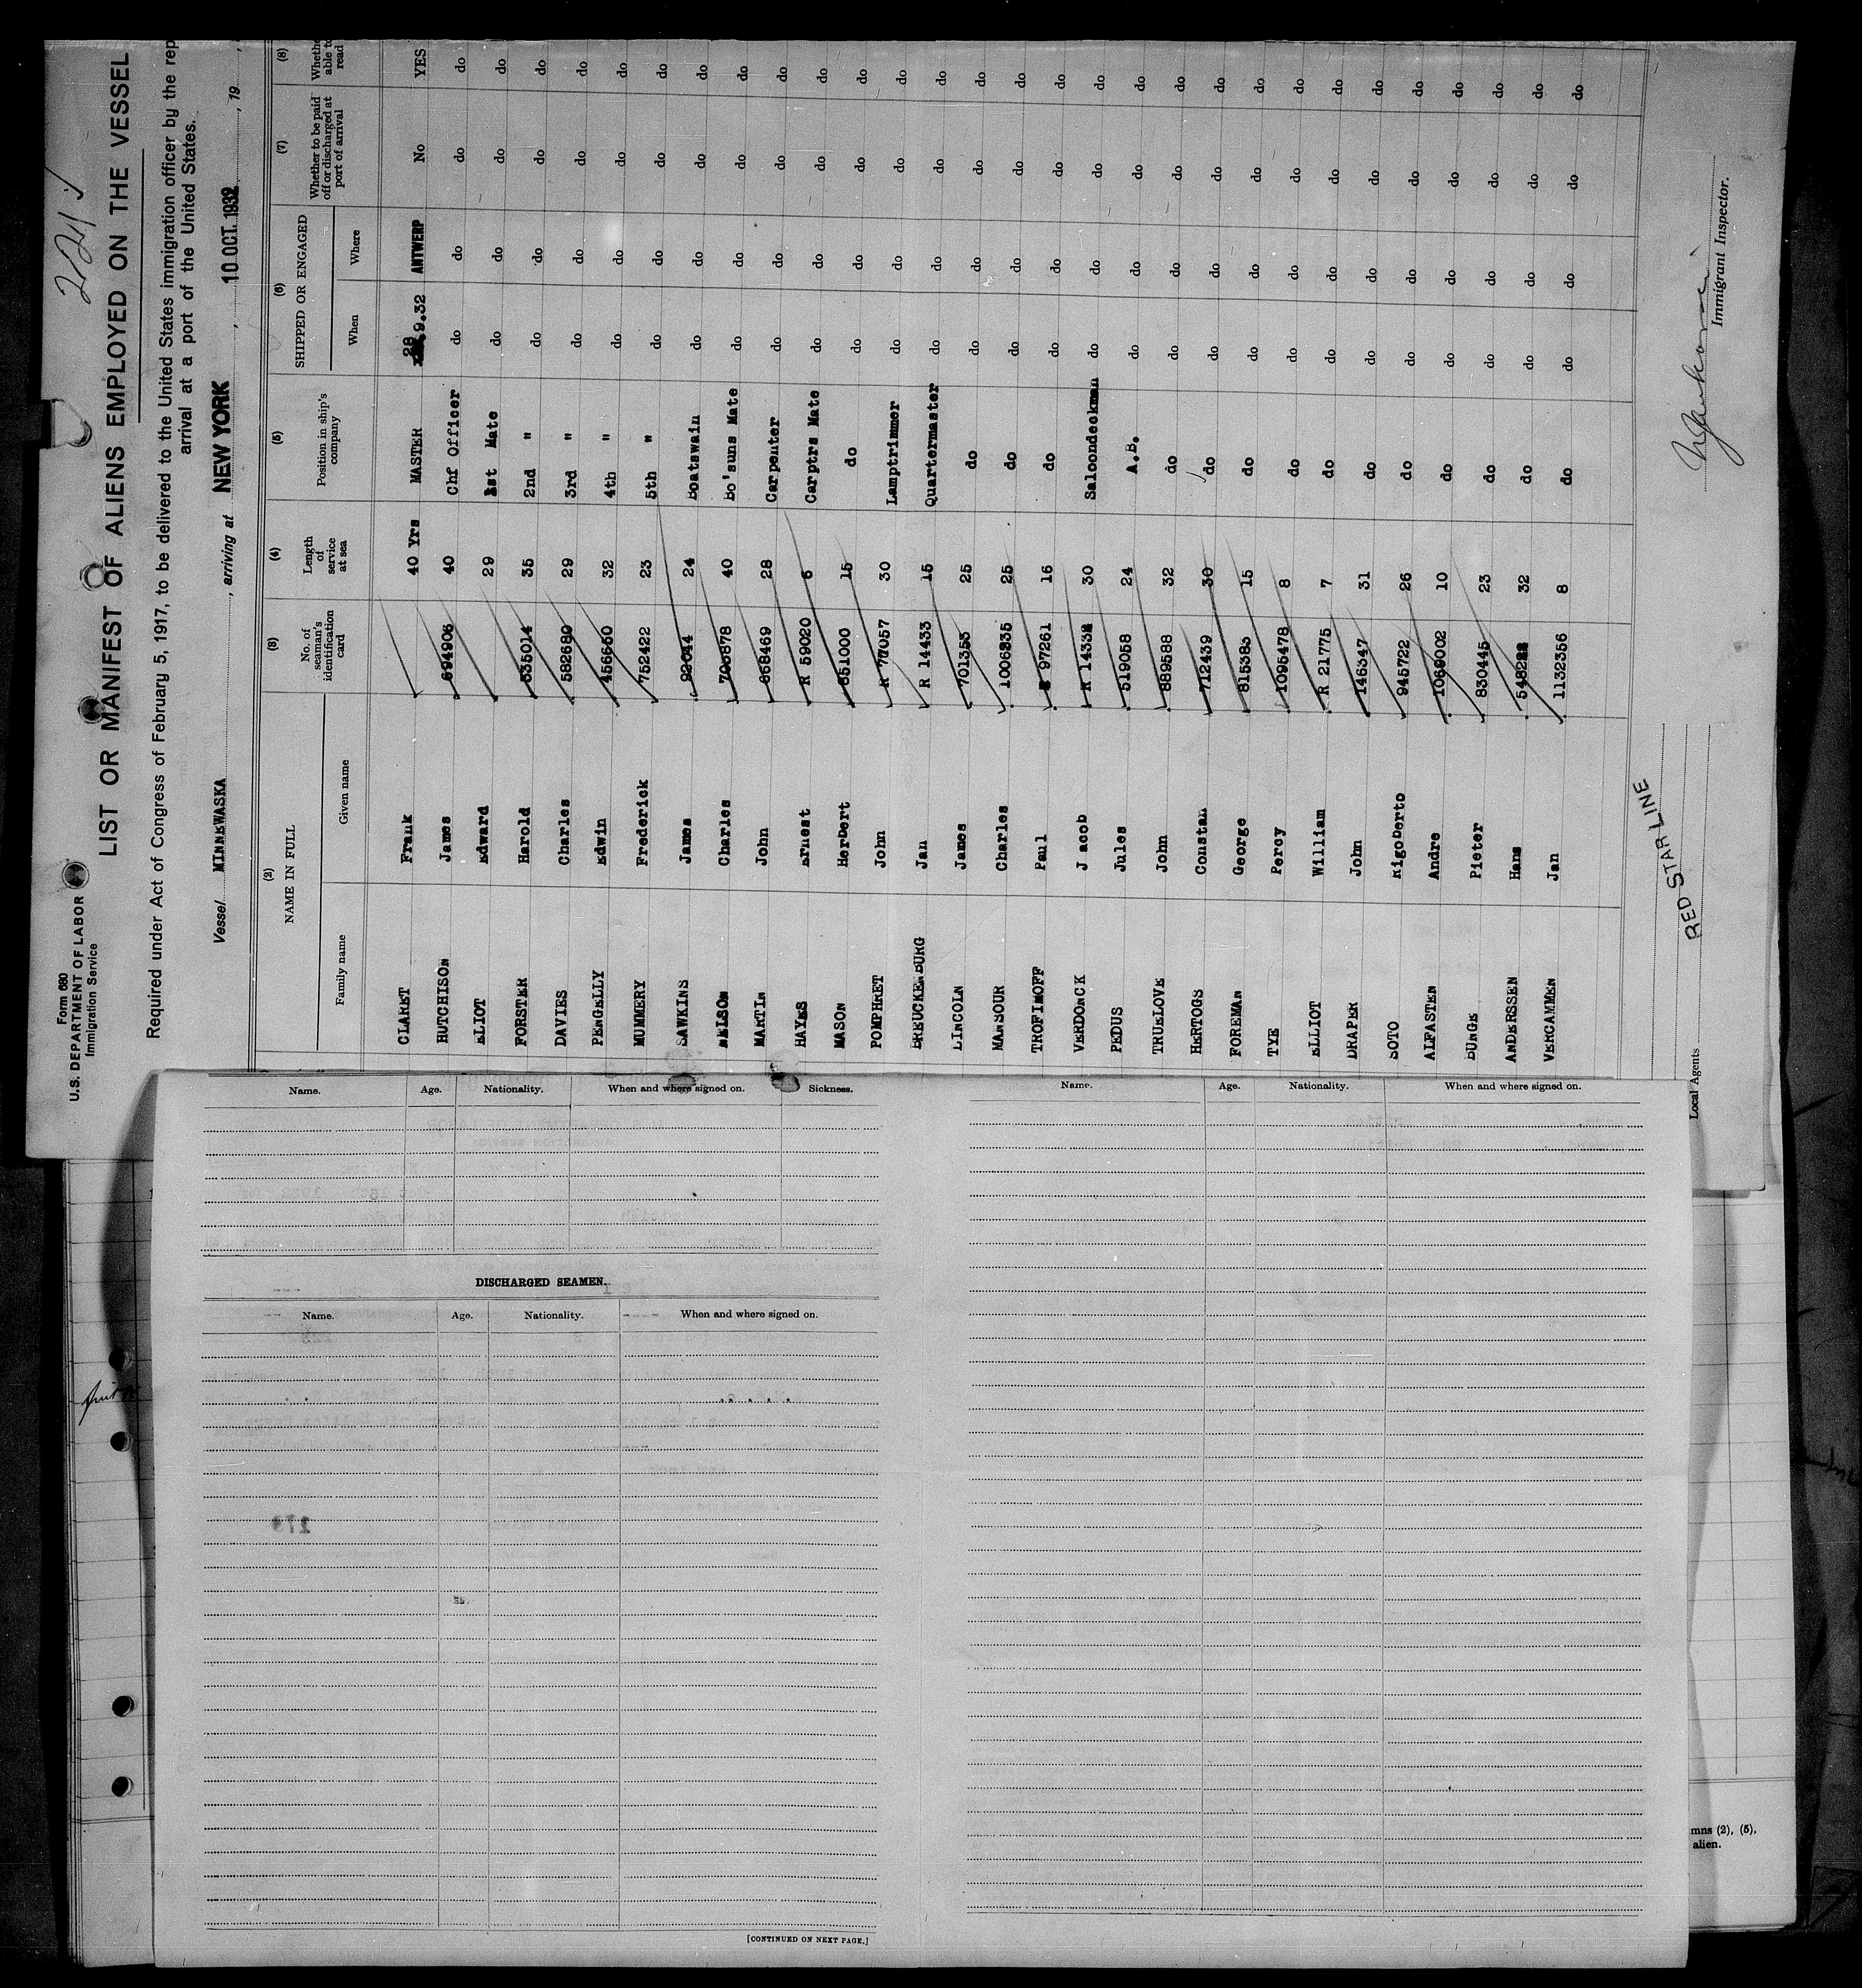 2/21 ✓
Form 680
U.S. DEPARTMENT OF LABOR
Immigration Service
LIST OR MANIFEST OF ALIENS EMPLOYED ON THE VESSEL
Required under Act of Congress of February 5, 1917, to be delivered to the United States immigration officer by the rep
arrival at a port of the United States.
Vessel MINNEWASKA, arriving at NEW YORK, 10 OCT. 1932, 19
(2) (3) (4) (5) (6) (7) (8)
NAME IN FULL No. of seaman's identification card Length of service at sea Position in ship's company SHIPPED OR ENGAGED Whether to be paid off or discharged at port of arrival Whethe able to read
Family name Given name When Where
CLARET Frank 40 Yrs MASTER 28.9.32 ANTWERP No YES
HUTCHISON James 694906 40 Chf Officer do do do do
ELIOT Edward 29 1st Mate do do do do
FORSTER Harold 535014 35 2nd " do do do do
DAVIES Charles 582680 29 3rd " do do do do
PENGELLY Edwin 456650 32 4th " do do do do
MUMMERY Frederick 752422 23 5th " do do do do
SAWKINS James 92044 24 Boatswain do do do do
NELSON Charles 706878 40 Bo'suns Mate do do do do
MARTIN John 668469 28 Carpenter do do do do
HAYES Ernest R 59020 6 Carptrs Mate do do do do
MASON Herbert 851000 15 do do do do do
POMPHRET John R 77057 30 Lamptrimmer do do do do
BREUCKENBURG Jan R 14433 15 Quartermaster do do do do
LINCOLN James 701353 25 do do do do do
MANSOUR Charles 1006835 25 do do do do do
TROFIMOFF Paul 97261 16 do do do do do
VERDONCK Jacob R 14332 30 Saloondeckman do do do do
PEDUS Jules 519058 24 A.B. do do do do
TRUELOVE John 889588 32 do do do do do
HERTOGS Constan 712439 30 do do do do do
FOREMAN George 815383 15 do do do do do
TYE Percy 1095478 8 do do do do do
ELLIOT William R 21775 7 do do do do do
DRAPER John 146347 31 do do do do do
SOTO Rigoberto 945722 26 do do do do do
ALFASTEN Andre 1069002 10 do do do do do
BUNGE Pieter 830445 23 do do do do do
ANDERSSEN Hans 32 do do do do do
VERCAMMEN Jan 1132356 8 do do do do do
Local Agents RED STAR LINE
Immigrant Inspector.
Name. Age. Nationality. When and where signed on. Sickness.
DISCHARGED SEAMEN.
Name. Age. Nationality. When and where signed on.
[CONTINUED ON NEXT PAGE.]
Name. Age. Nationality. When and where signed on.
mns (2), (5),
alien.